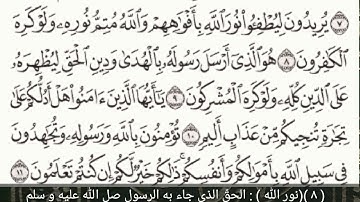 ٧ يُرِيدُونَ لِيُطْفِـُٔوا۟ نُورَ ٱللَّهِ بِأَفْوَٰهِهِمْ وَٱللَّهُ مُتِمُّ نُورِهِۦ وَلَوْ كَرِهَ
ٱلْكَٰفِرُونَ ٨ هُوَ ٱلَّذِىٓ أَرْسَلَ رَسُولَهُۥ بِٱلْهُدَىٰ وَدِينِ ٱلْحَقِّ لِيُظْهِرَهُۥ
عَلَى ٱلدِّينِ كُلِّهِۦ وَلَوْ كَرِهَ ٱلْمُشْرِكُونَ ٩ يَٰٓأَيُّهَا ٱلَّذِينَ ءَامَنُوا۟ هَلْ أَدُلُّكُمْ عَلَىٰ
تِجَٰرَةٍ تُنجِيكُم مِّنْ عَذَابٍ أَلِيمٍ ١٠ تُؤْمِنُونَ بِٱللَّهِ وَرَسُولِهِۦ وَتُجَٰهِدُونَ
فِى سَبِيلِ ٱللَّهِ بِأَمْوَٰلِكُمْ وَأَنفُسِكُمْ ذَٰلِكُمْ خَيْرٌ لَّكُمْ إِن كُنتُمْ تَعْلَمُونَ ١١
(٨)(نور الله) : الحق الذي جاء به الرسول صل الله عليه و سلم